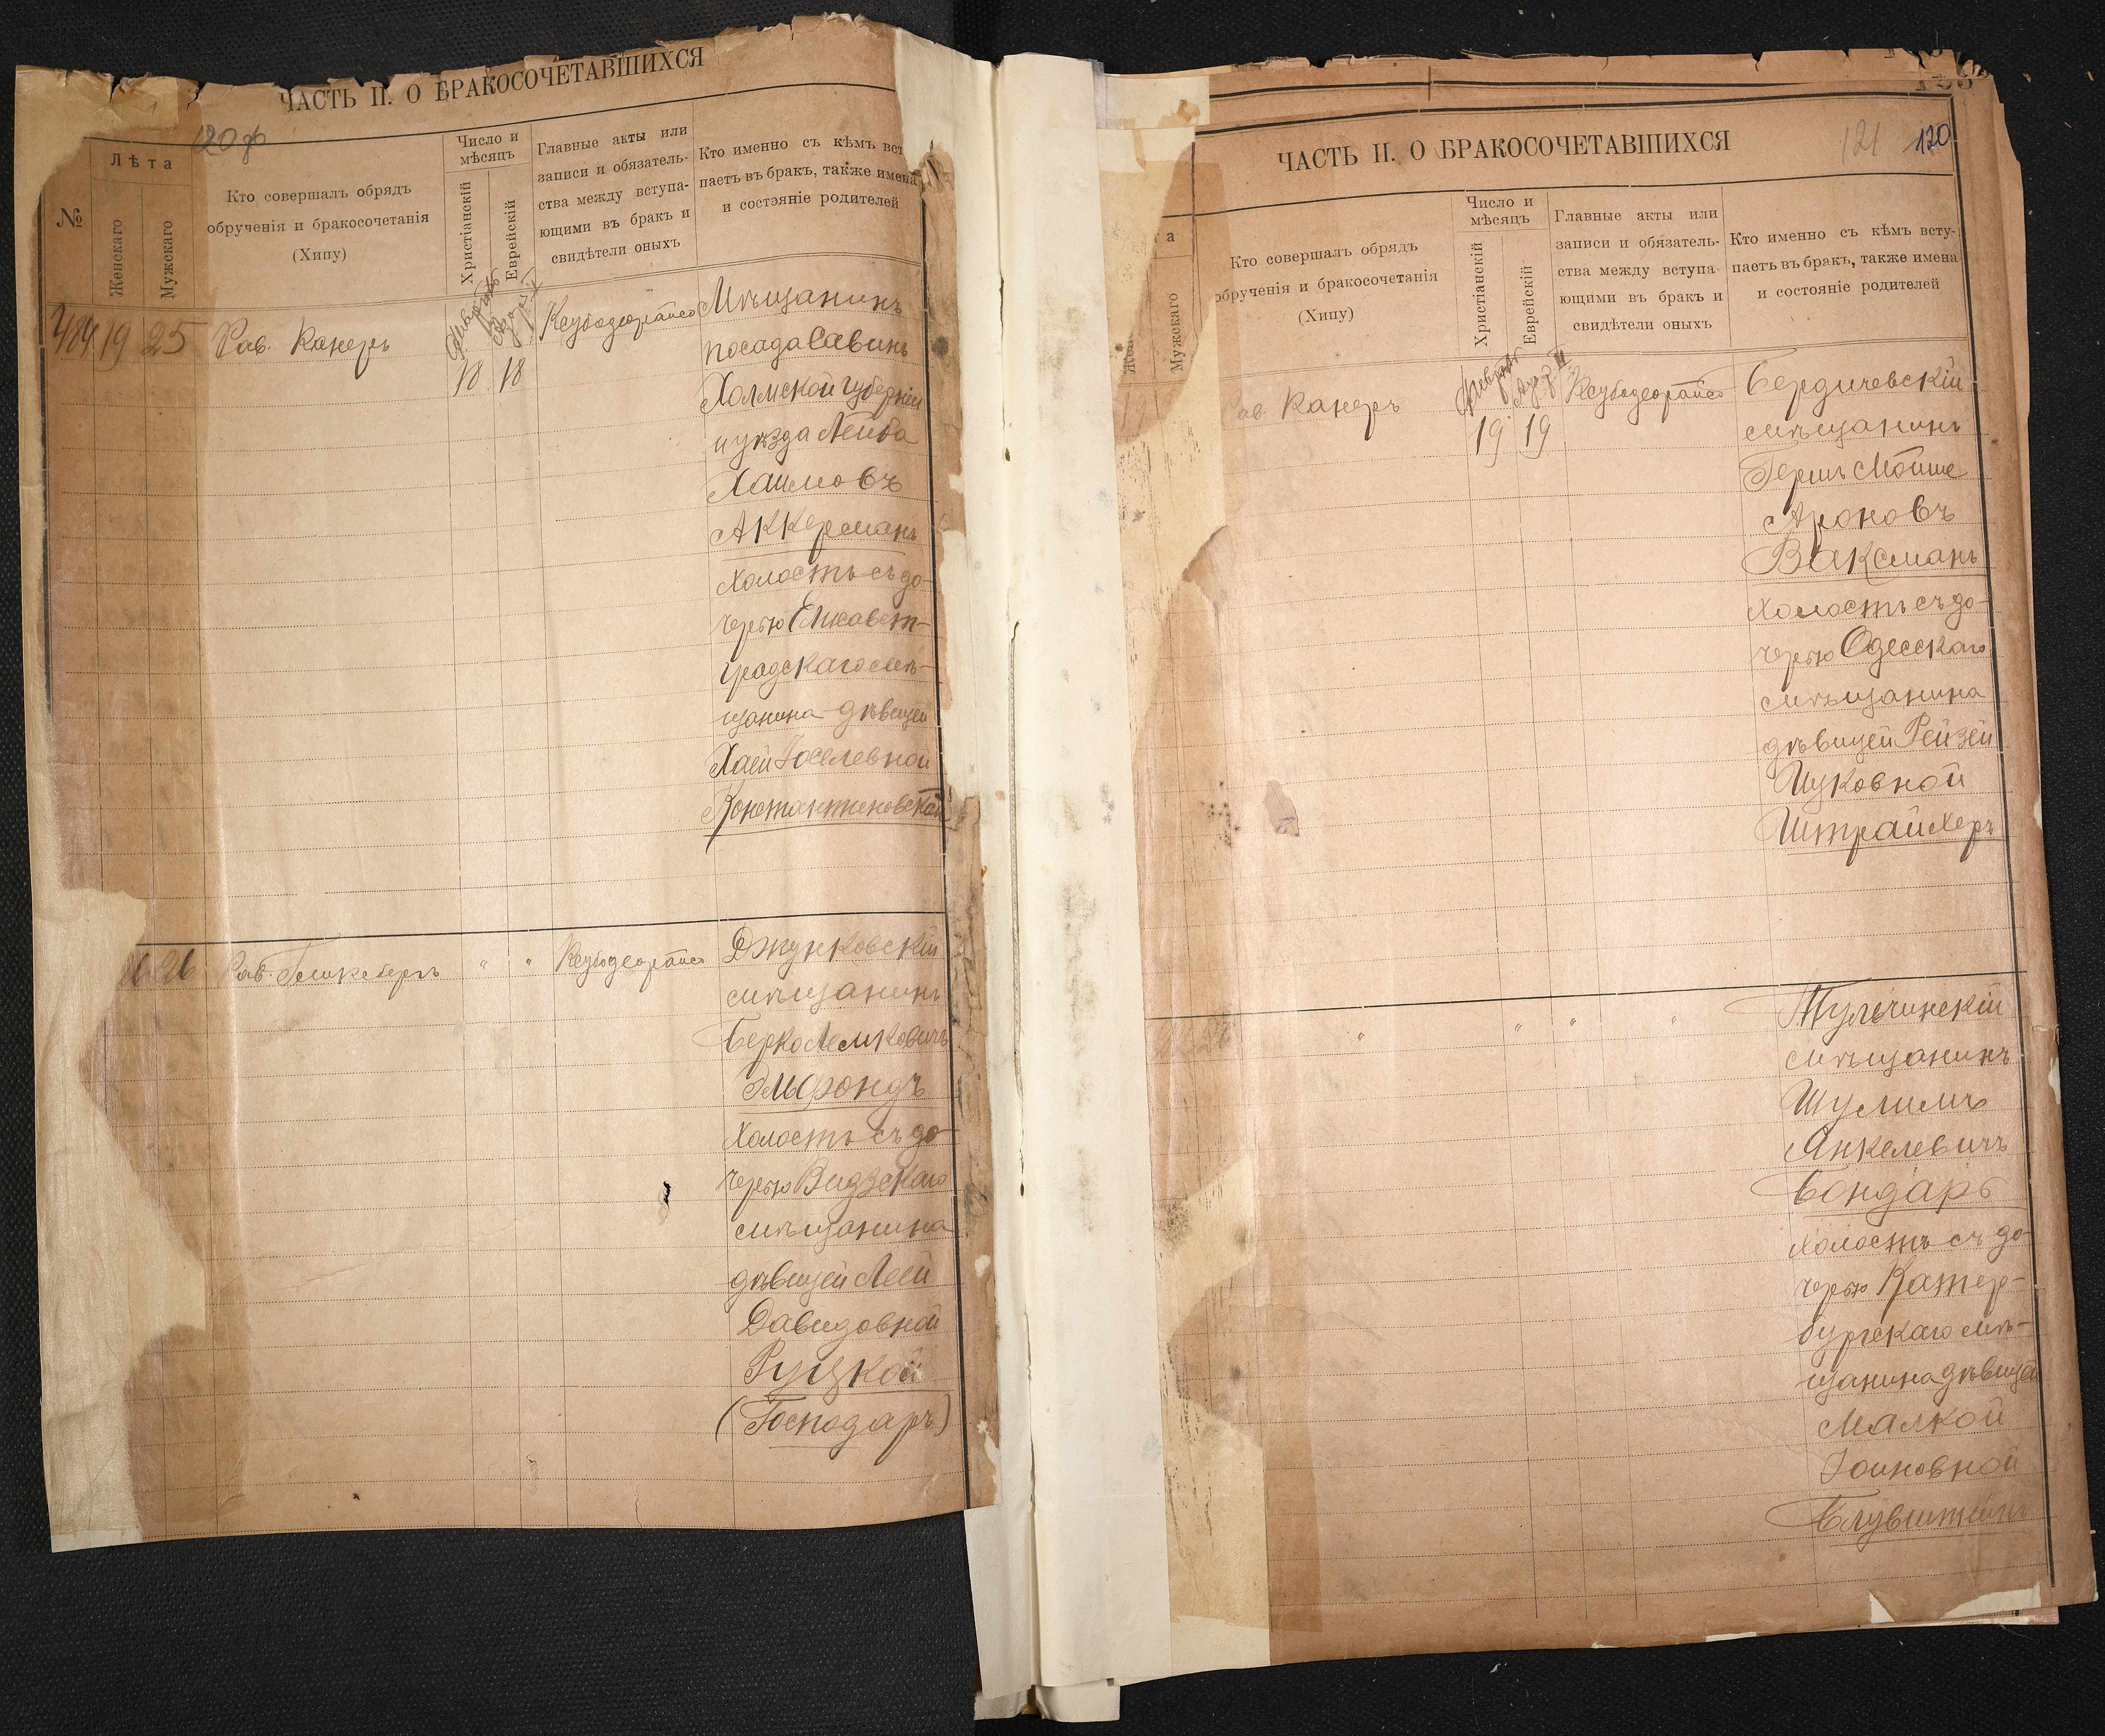 ЧАСТЬ II. О БРАКОСОЧЕТАВШИХСЯ
120 об
№
Лѣта
Женскаго
Мужскаго
Кто совершалъ обрядъ
обрученія и бракосочетанія
(Хипу)
Число и
мѣсяцъ
Христіанскій
Еврейскій
Главные акты или
записи и обязатель-
ства между вступа-
ющими въ бракъ и
свидѣтели оныхъ
Кто именно съ кѣмъ всту
паетъ въ бракъ, также имена
и состэяніе родителей
484 19 25 Рав. Канеръ
18 18
Мѣщанинъ
посада Савинъ
Холмской губерніи
и уѣзда Лейба
Хаимовъ
Аккерманъ
холостъ съ до-
черью Елисавет-
градскаго мѣ-
щанина дѣвицей
Хаей Іоселевной
Константиновской
26 Рав. " "
Джунковскій
мѣщанинъ
Берко Лемковичъ
Эльфондъ
холостъ съ до-
черью Видзскаго
мѣщанина
дѣвицей Леей
Давидовной
Руцкой
(Господаръ)
ЧАСТЬ II. О БРАКОСОЧЕТАВШИХСЯ
121 120
та
Мужскаго
Кто совершалъ обрядъ
обрученія и бракосочетанія
(Хипу)
Число и
мѣсяцъ
Христіанскій
Еврейскій
Главные акты или
записи и обязатель-
ства между вступа-
ющими въ бракъ и
свидѣтели оныхъ
Кто именно съ кѣмъ всту-
паетъ въ бракъ, также имена
и состояніе родителей
Канеръ
19 19
Бердичевскій
мѣщанинъ
Гершъ Мойше
Ароновъ
Ваксманъ
холостъ съ до-
черью Одесскаго
мѣщанина
дѣвицей Рейзей
Ицковной
Штрайхеръ
" " " "
Тульчинскій
мѣщанинъ
Шулимъ
Янкелевичъ
Бондарь
холостъ съ до-
черью Катер-
бургскаго мѣ-
щанина дѣвицей
Малкой
Іоиновной
Блувштейнъ